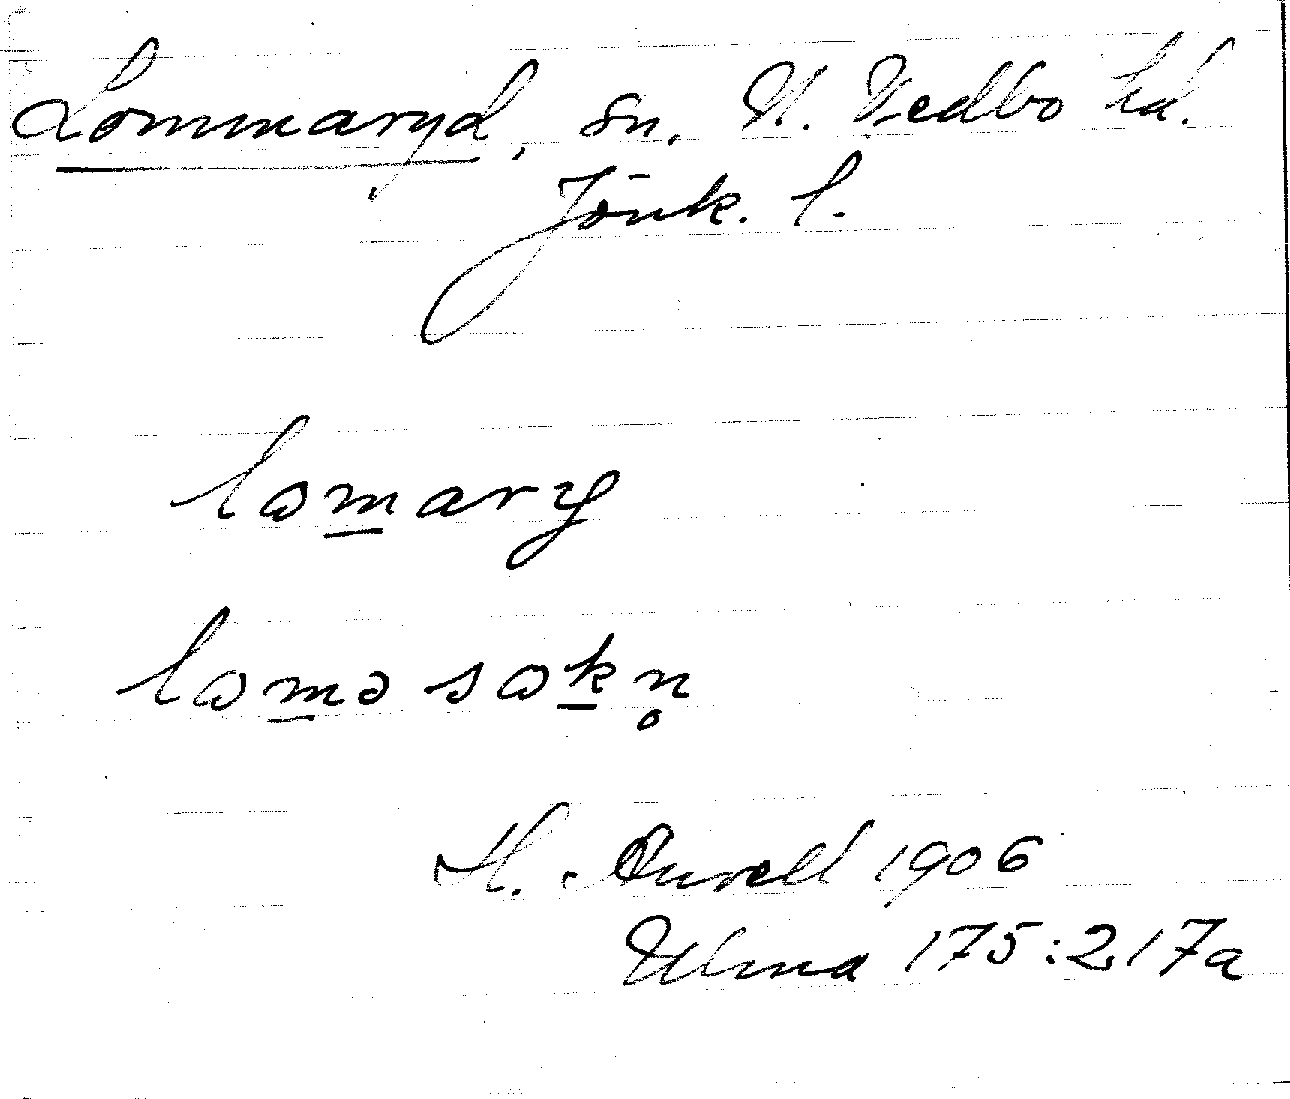 Lommaryd, sn. N. Vedbo hd.
Jönk. l.
lomary
lomə sokn̥
H. Aurell 1906
Ulma 175:217a